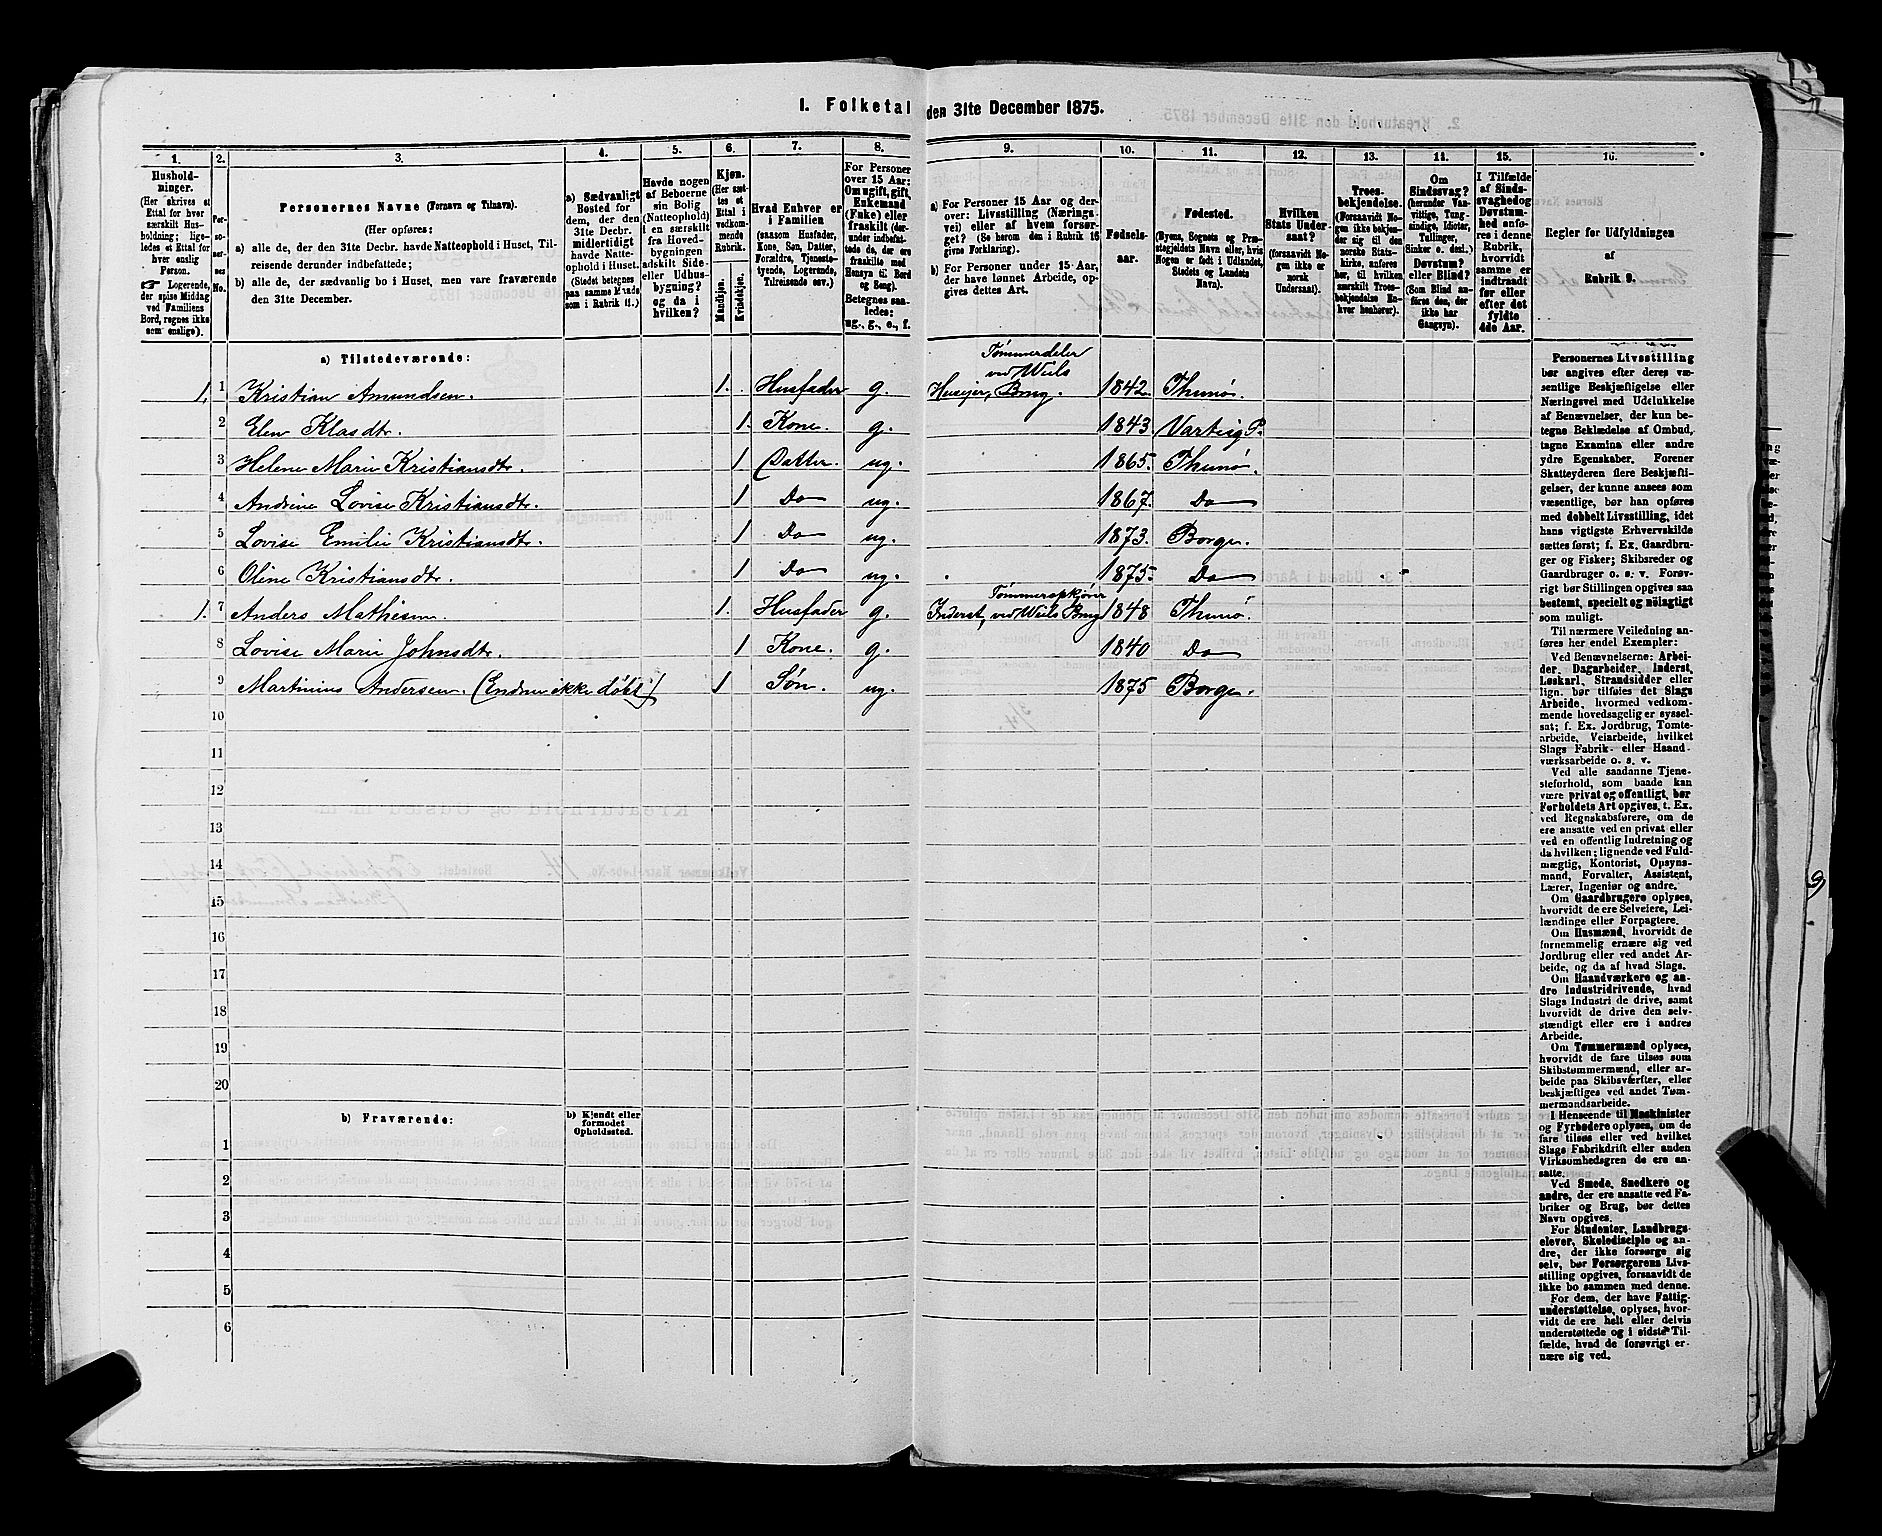 1. Folketal den 31te December 1875.
1. 2. 3. 4. 5. 6. 7. 8. 9. 10. 11. 12. 13. 14. 15. 16.
Hushold-
ninger.
(Her skrives et
Ettal for hver
særskilt Hus-
holdning; lige-
ledes et Ettal for
hver enslig
Person.
☞ Logerende,
der spise Middag
ved Familiens
Bord, regnes ikke
som enslige).
Per-
so-
ner-
nes
No.
Personernes Navne (Fornavn og Tilnavn).
(Her opføres:
a) alle de, der den 31te Decbr. havde Natteophold i Huset, Til-
reisende derunder indbefattede;
b) alle de, der sædvanlig bo i Huset, men vare fraværende
den 31te December.
a) Sædvanligt
Bosted for
dem, der den
31te Decbr.
midlertidigt
havde Natte-
ophold i Huset.
(Stedet betegnes
paa samme Maade
som i Rubrik 11.)
Havde nogen
af Beboerne
sin Bolig
(Natteophold)
i en særskilt
fra Hoved-
bygningen
adskilt Side-
eller Udhus-
bygning?
og da i
hvilken?
Kjøn.
(Her sæt-
tes et
Ettal i
vedkom-
mende
Rubrik.
Mandkjøn.
Kvindekjøn.
Hvad Enhver er
i Familien
(saasom Husfader,
Kone, Søn, Datter,
Forældre, Tjeneste-
tyende, Logerende,
Tilreisende osv.)
For Personer
over 15 Aar:
Om ugift, gift,
Enkemand
(Enke) eller
fraskilt (der-
under indbefat-
tede de, der ere
fraskilte med
Hensyn til Bord
og Seng).
Betegnes saa-
ledes:
ug., g., e., f.
a) For Personer 15 Aar og der-
over: Livsstilling (Nærings-
vei) eller af hvem forsør-
get? (Se herom den i Rubrik 16
givne Forklaring).
b) For Personer under 15 Aar,
der have lønnet Arbeide, op-
gives dettes Art.
Fødsels-
aar.
Fødested.
(Byens, Sognets og Præ-
stegjeldets Navn eller, hvis
Nogen er født i Udlandet,
Stedets og Landets
Navn).
Hvilken
Stats Under-
saat?
(forsaavidt No-
gen ikke er
norsk
Undersaat).
Troes-
bekjendelse.
(Forsaavidt No-
gen ikke bekjen-
der sig til den
norske Stats-
kirke, anføres
her, til hvilken
særskilt Troes-
bekjendelse En-
hver henhører).
Om
Sindssvag?
(herunder Van-
vittige, Tung-
sindige, Idioter,
Tullinger,
Sinker o. desl.)
Døvstum?
eller Blind?
(Som Blind an-
føres den, der
ikke har
Gangsyn).
I Tilfælde
af Sinds-
svaghed og
Døvstum-
hed anfø-
res i denne
Rubrik,
hvorvidt
samme er
indtraadt
før eller
efter det
fyldte
4de Aar.
Regler for Udfyldningen
af
Rubrik 9.
a) Tilstedeværende:
1. 1 Kristian Amundsen. 1. Husfader g. Huseier, Tømmerdeler ved Weels Brug. 1842. Thunø.
2 Elen Klasdtr. 1. Kone. g. 1843. Varteig P.
3 Helene Marie Kristiansdtr. 1 Datter. ug. 1865. Thunø.
4 Andrine Lovise Kristiansdtr. 1 Do ug. 1867. Do
5 Lovise Emilie Kristiansdtr. 1 Do ug. 1873. Borge.
6 Oline Kristiansdtr. 1 Do ug. 1875. Do
1. 7 Anders Mathisen 1. Husfader g. Inderst, Tømmeropkjører ved Weels Brug 1848 Thunø.
8 Lovise Marie Johnsdtr. 1 Kone. g. 1840 Do
9 Martinius Andersen. (Endnu ikke døbt) 1 Søn. ug. 1875 Borge.
10
11
12
13
14
15
16
17
18
19
20
b) Fraværende:
b) Kjendt eller
formodet
Opholdssted.
1
2
3
4
5
6
Personernes Livsstilling
bør angives efter deres væ-
sentlige Beskjæftigelse eller
Næringsvei med Udelukkelse
af Benævnelser, der kun be-
tegne Beklædelse af Ombud,
tagne Examina eller andre
ydre Egenskaber. Forener
Skatteyderen flere Beskjæfti-
gelser, der kunne ansees som
væsentlige, bør han opføres
med dobbelt Livsstilling, idet
hans vigtigste Erhvervskilde
sættes først; f. Ex. Gaardbru-
ger og Fisker; Skibsreder og
Gaardbruger o. s. v. Forøv-
rigt bør Stillingen opgives saa
bestemt, specielt og nöiagtigt
som muligt.
Til nærmere Veiledning an-
føres her endel Exempler:
Ved Benævnelserne: Arbei-
der, Dagarbeider, Inderst,
Løskarl, Strandsidder eller
lign. bør tilføies det Slags
Arbeide, hvormed vedkom-
mende hovedsagelig er syssel-
sat; f. Ex. Jordbrug, Tomte-
arbeide, Veiarbeide, hvilket
Slags Fabrik- eller Haand-
værksarbeide o. s. v.
Ved alle saadanne Tjene-
steforhold, som baade kan
være privat og offentligt, bør
Forholdets Art opgives, t. Ex.
ved Regnskabsførere, om de
ere ansatte ved en privat eller
ved en offentlig Indretning og
da hvilken; lignende ved Fuld-
mægtig, Kontorist, Opsyns-
mand, Forvalter, Assistent,
Lærer, Ingeniør og andre.
Om Gaardbrugere oplyses,
hvorvidt de ere Selveiere, Lei-
lændinge eller Forpagtere.
Om Husmænd, hvorvidt de
fornemmelig ernære sig ved
Jordbrug eller ved andet Ar-
beide, og da af hvad Slags.
Om Haandværkere og an-
dre Industridrivende, hvad
Slags Industri de drive, samt
hvorvidt de drive den selv-
stændigt eller ere i andres
Arbeide.
Om Tømmermænd oplyses,
hvorvidt de fare tilsøs som
Skibstømmermænd, eller ar-
beide paa Skibsværfter, eller
beskjæftiges ved andet Tøm-
mermandsarbeide.
I Henseende til Maskinister
og Fyrbødere oplyses, om de
fare tilsøs eller ved hvilket
Slags Fabrikdrift eller anden
Virksomhedsgren de ere an-
satte.
Ved Smede, Snedkere og
andre, der ere ansatte ved Fa-
briker og Brug, bør dettes
Navn opgives.
For Studenter, Landbrugs-
elever, Skoledisciple og an-
dre, der ikke forsørge sig
selv, bør Forsørgerens Livs-
stilling opgives, forsaavidt de
ikke bo sammen med denne.
For dem, der have Fattig-
understøttelse, oplyses, hvor-
vidt de ere helt eller delvis
understøttede og i sidste Til-
fælde, hvad de forøvrigt er-
nære sig ved.